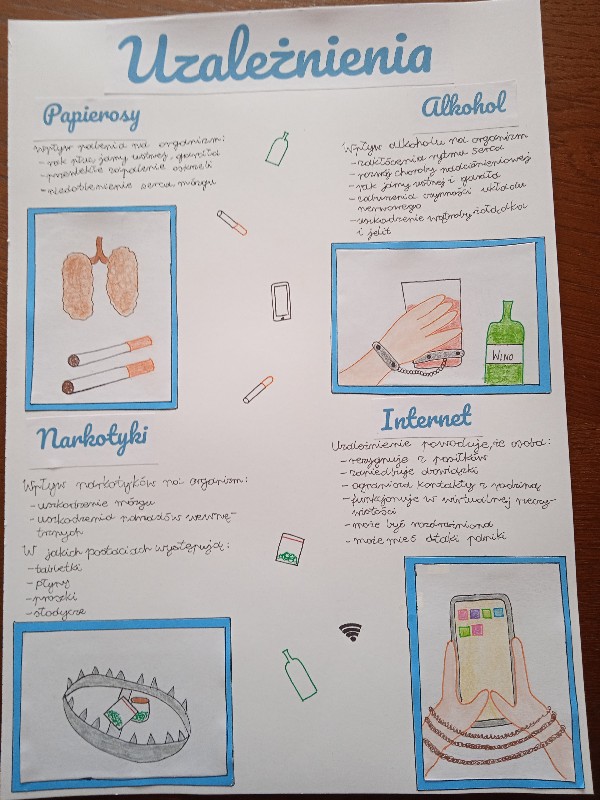 Uzależnienia
Papierosy
Wpływ palenia na organizm:
- rak płuc, jamy ustnej, gardła
- przewlekłe zapalenie oskrzeli
- niedotlenienie serca mózgu
Alkohol
Wpływ alkoholu na organizm
- zakłócenia rytmu serca
- rozwój choroby nadciśnieniowej
- rak jamy ustnej i gardła
- zaburzenia czynności układu
nerwowego
- uszkodzenie wątroby, żołądka
i jelit
WINO
Narkotyki
Wpływ narkotyków na organizm:
- uszkodzenie mózgu
- uszkodzenia narządów wewnę-
trznych
W jakich postaciach występują:
- tabletki
- płyny
- proszki
- słodycze
Internet
Uzależnienie powoduje, że osoba:
- rezygnuje z posiłków
- zaniedbuje obowiązki
- ogranicza kontakty z rodziną
- funkjonuje w wirtualnej rzeczy-
wistości
- może być rozdrażniona
- może mieć ataki paniki